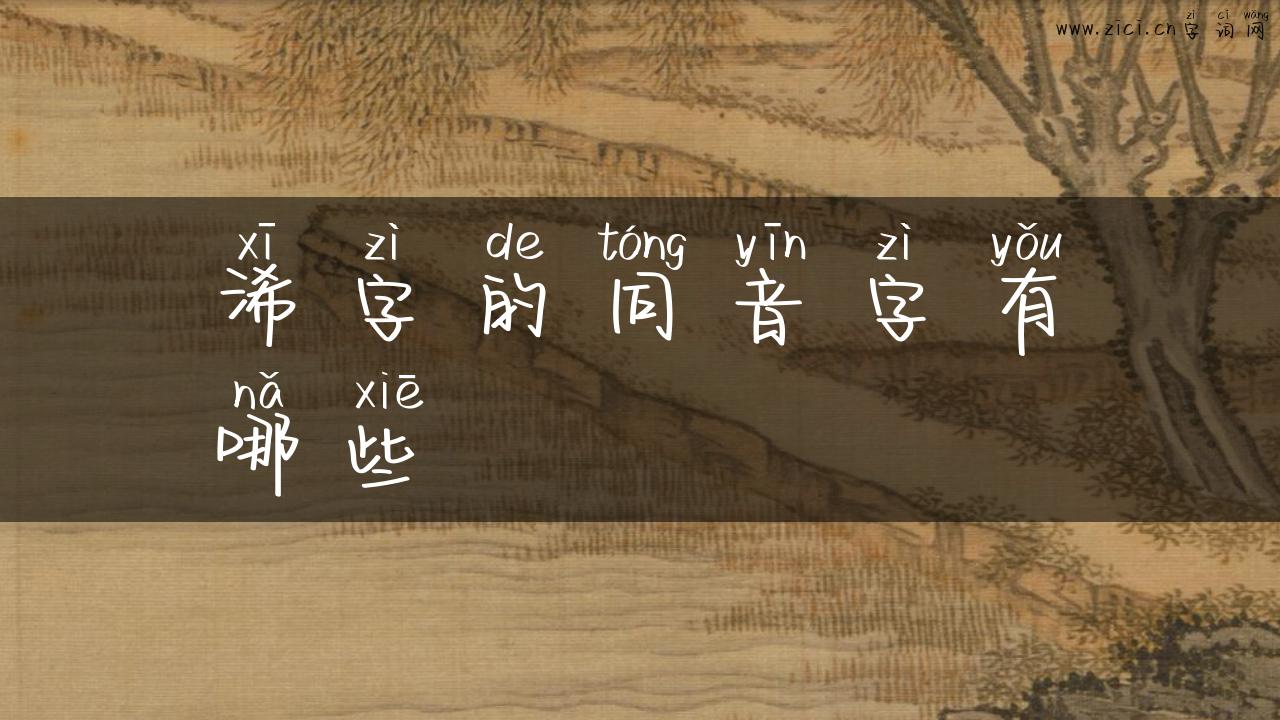 zì cí wǎng
www.zici.cn字词网
xī zì de tóng yīn zì yǒu
浠字的同音字有
nǎ xiē
哪些